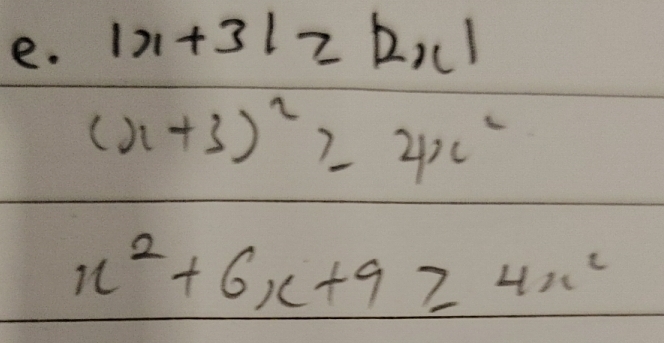 e. |x+3| ≥ |2x|
(x+3)² ≥ 4x²
x²+6x+9 ≥ 4x²